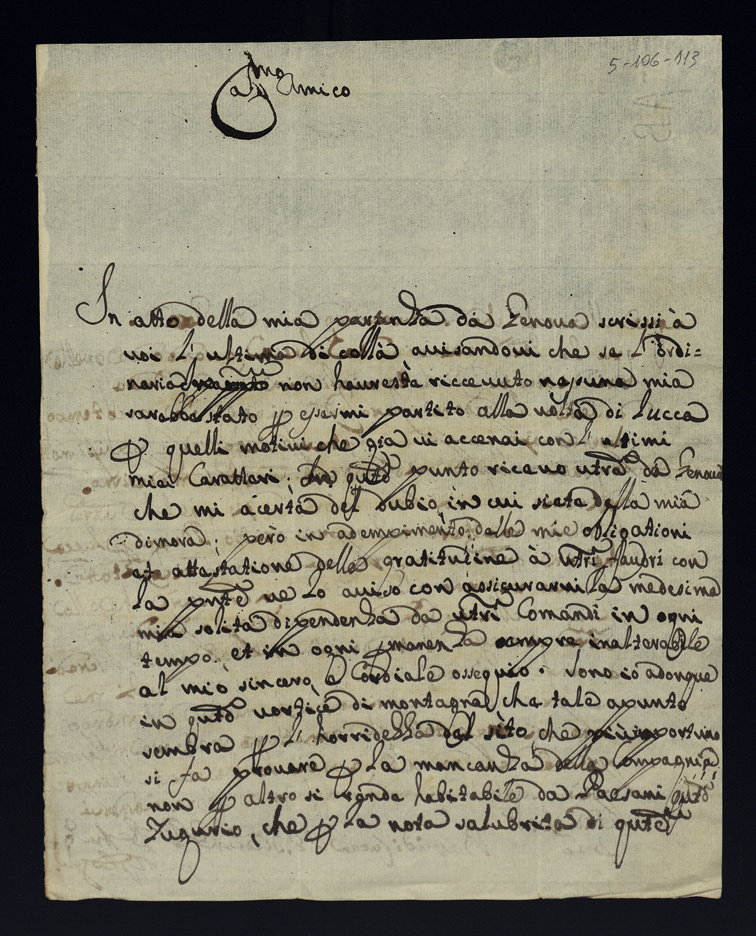 5-106-113
Amico
In atto della mia partenza da Genova scrissi à
voi l'ultima di collà avisandovi che se l'ordi=
naria non haureste riccevuto nessuna mia
sarebbe stato p essermi partito alla volta di Lucca
p quelli motivi che già vi accenai con l'ultimi
miei Caratteri; In qsto punto ricevo vtra da Genova
che mi acerta del dubio, in cui siete della mia
dimora; però in adempimento delle mie obligationi
et attestatione della gratitudine à vtri favori con
la pnte ve lo aviso con assicurarvi la medesima
mia solita dipendenza da vtri Comandi in ogni
tempo, et in ogni pmanenza sempre inalterabile
al mio sincero, e Cordiale ossequio. Sono io adonque
in qsto vortice di montagne che tale apunto
sembra p l'horridezza del sito, che più importuno
si fa provare p la mancanza della Compagnia
non p altro si rende habitabile da Paesani qsto
Tugurio, che p la nota salubrità di qste